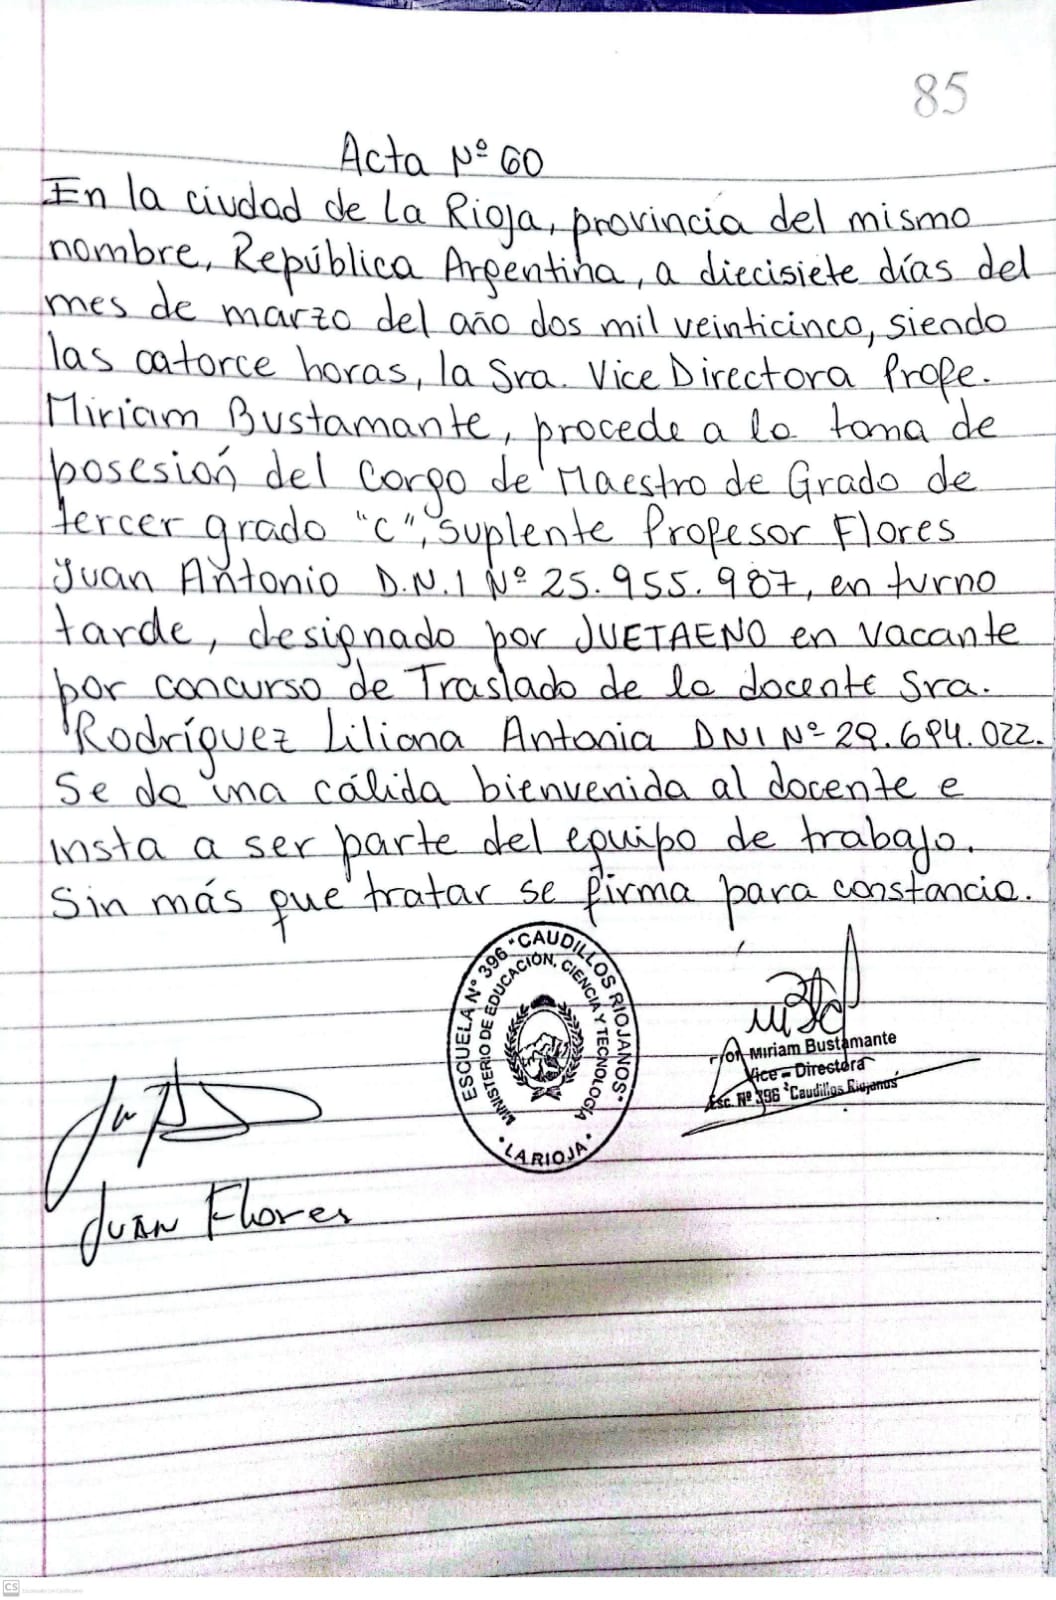 85
Acta Nº 60
En la ciudad de La Rioja, provincia del mismo
nombre, República Argentina, a diecisiete días del
mes de marzo del año dos mil veinticinco, siendo
las catorce horas, la Sra. Vice Directora Profe.
Miriam Bustamante, procede a la toma de
posesión del Cargo de Maestro de Grado de
tercer grado "C", suplente Profesor Flores
Juan Antonio D.N.I Nº 25.955.987, en turno
tarde, designado por JUETAENO en vacante
por concurso de Traslado de la docente Sra.
Rodríguez Liliana Antonia DNI Nº 29.694.022.
Se da una cálida bienvenida al docente e
insta a ser parte del equipo de trabajo.
Sin más que tratar se firma para constancia.
ESCUELA Nº 396 "CAUDILLOS RIOJANOS"
MINISTERIO DE EDUCACIÓN, CIENCIA Y TECNOLOGÍA
• LA RIOJA •
Prof. Miriam Bustamante
Vice - Directora
Esc. Nº 396 "Caudillos Riojanos"
Juan Flores
CS